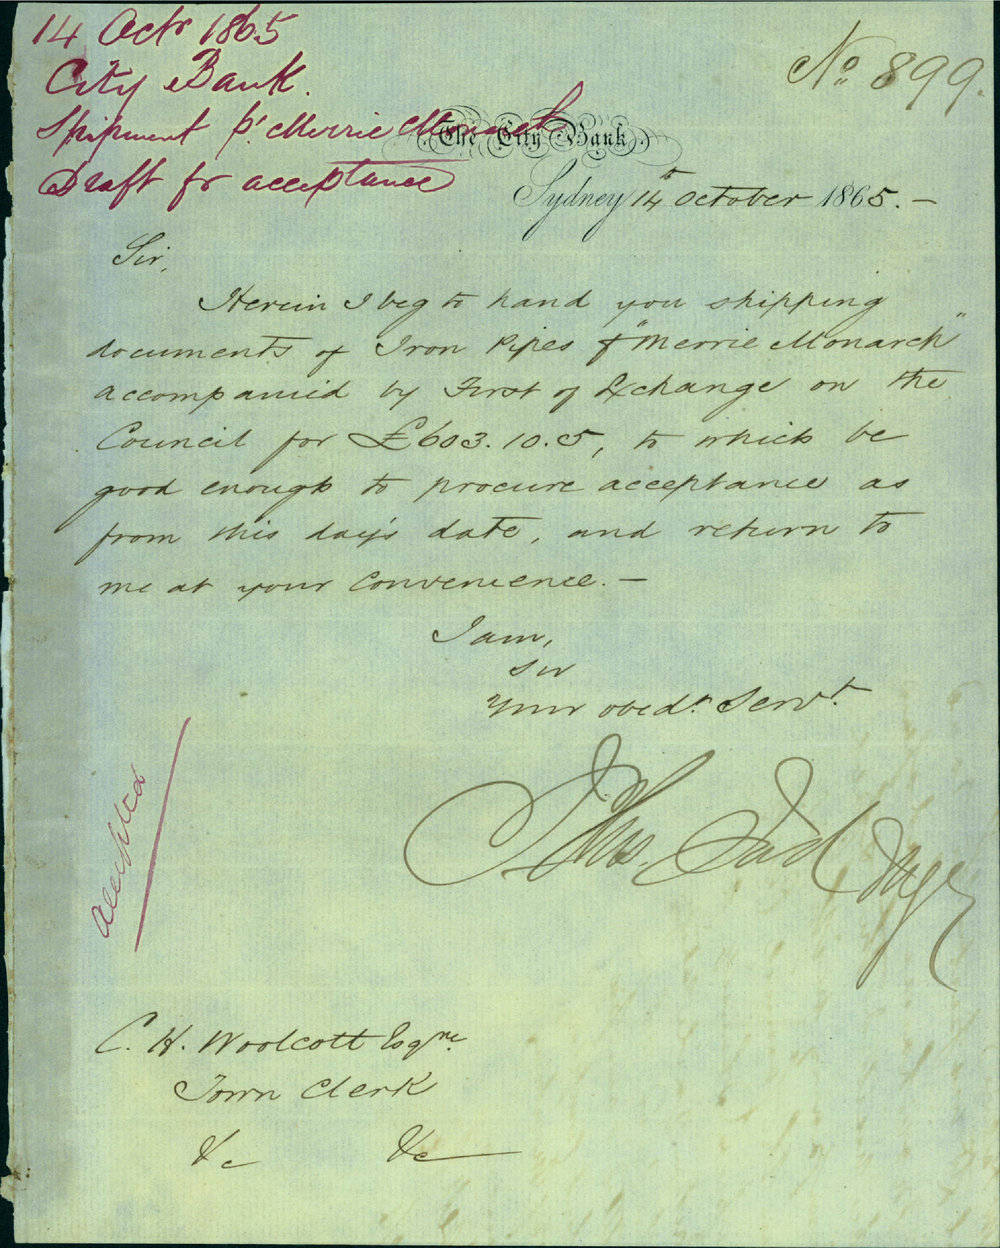 14 Octr 1865
City Bank.
Shipment pr Merrie Monarch
Draft for acceptance
No. 899.
The City Bank
Sydney 14th October 1865. —
Sir,
Herein I beg to hand you shipping
documents of Iron Pipes p "Merrie Monarch"
accompanied by First of Exchange on the
Council for £603.10.5, to which be
good enough to procure acceptance as
from this day's date, and return to
me at your convenience. —
I am,
Sir
Your obedt. Servt.
Thos.
accepted
C. H. Woolcott Esqre.
Town Clerk
&c &c